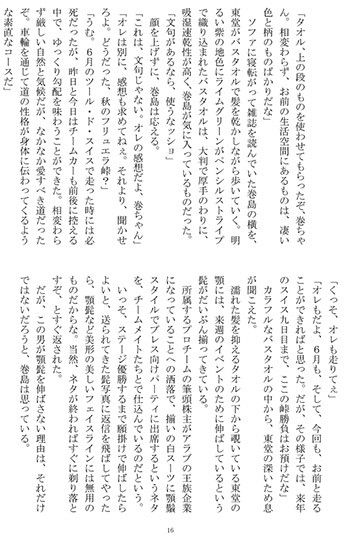 「タオル、上の段のものを使わせてもらったぞ、巻ちゃ
ん。相変わらず、お前の生活空間にあるものは、凄い
色と柄のものばかりだな」
ソファに寝転がって雑誌を読んでいた巻島の横を、
東堂がバスタオルで髪を乾かしながら歩いていく。明
るい紫の地色にライムグリーンがペンシルストライプ
で織り込まれたバスタオルは、大判で厚手のわりに、
吸湿速乾性が高く、巻島が気に入っているものだった。
「文句があるなら、使うなッショ」
顔を上げずに、巻島は応える。
「これは、文句じゃない。オレの感想だよ、巻ちゃん」
「オレは別に、感想も求めてねぇ。それより、聞かせ
ろよ。どうだった、秋のフリュエラ峠？」
「うむ。６月のツール・ド・スイスで走った時には必
死だったが、昨日と今日はチームカーも前後に控える
中で、ゆっくり勾配を味わうことができた。相変わら
ず厳しい自然と気候だが、なかなか愛すべき道だった
ぞ。車輪を通じて道の性格が身体に伝わってくるよう
な素直なコースだ」
「くっそ、オレも走りてぇ」
「オレもだよ、６月も、そして、今回も、お前と走る
ことができればと思った。だが、その様子では、来年
のスイス九日目まで、ここの峠勝負はお預けだな」
カラフルなバスタオルの中から、東堂の深いため息
が聞こえた。
濡れた髪を抑えるタオルの下から覗いている東堂の
顎には、来週のイベントのために伸ばしているという
髭がだいぶん揃ってきている。
所属するプロチームの筆頭株主がアラブの王族企業
になっていることへの洒落で、揃いの白スーツに顎鬚
スタイルでプレス向けパーティに出席するというネタ
を、チームメイトたちとで仕込んでいるのだという。
いっそ、ステージ優勝するまで願掛けで伸ばしたら
よいと、送られてきた髭写真に返信を飛ばしてやった
ら、顎髭など美形の美しいフェイスラインには無用の
ものだからな。当然、ネタが終わればすぐに剃り落と
すぞ、とすぐ返された。
だが、この男が顎髭を伸ばさない理由は、それだけ
ではないだろうと、巻島は思っている。
16